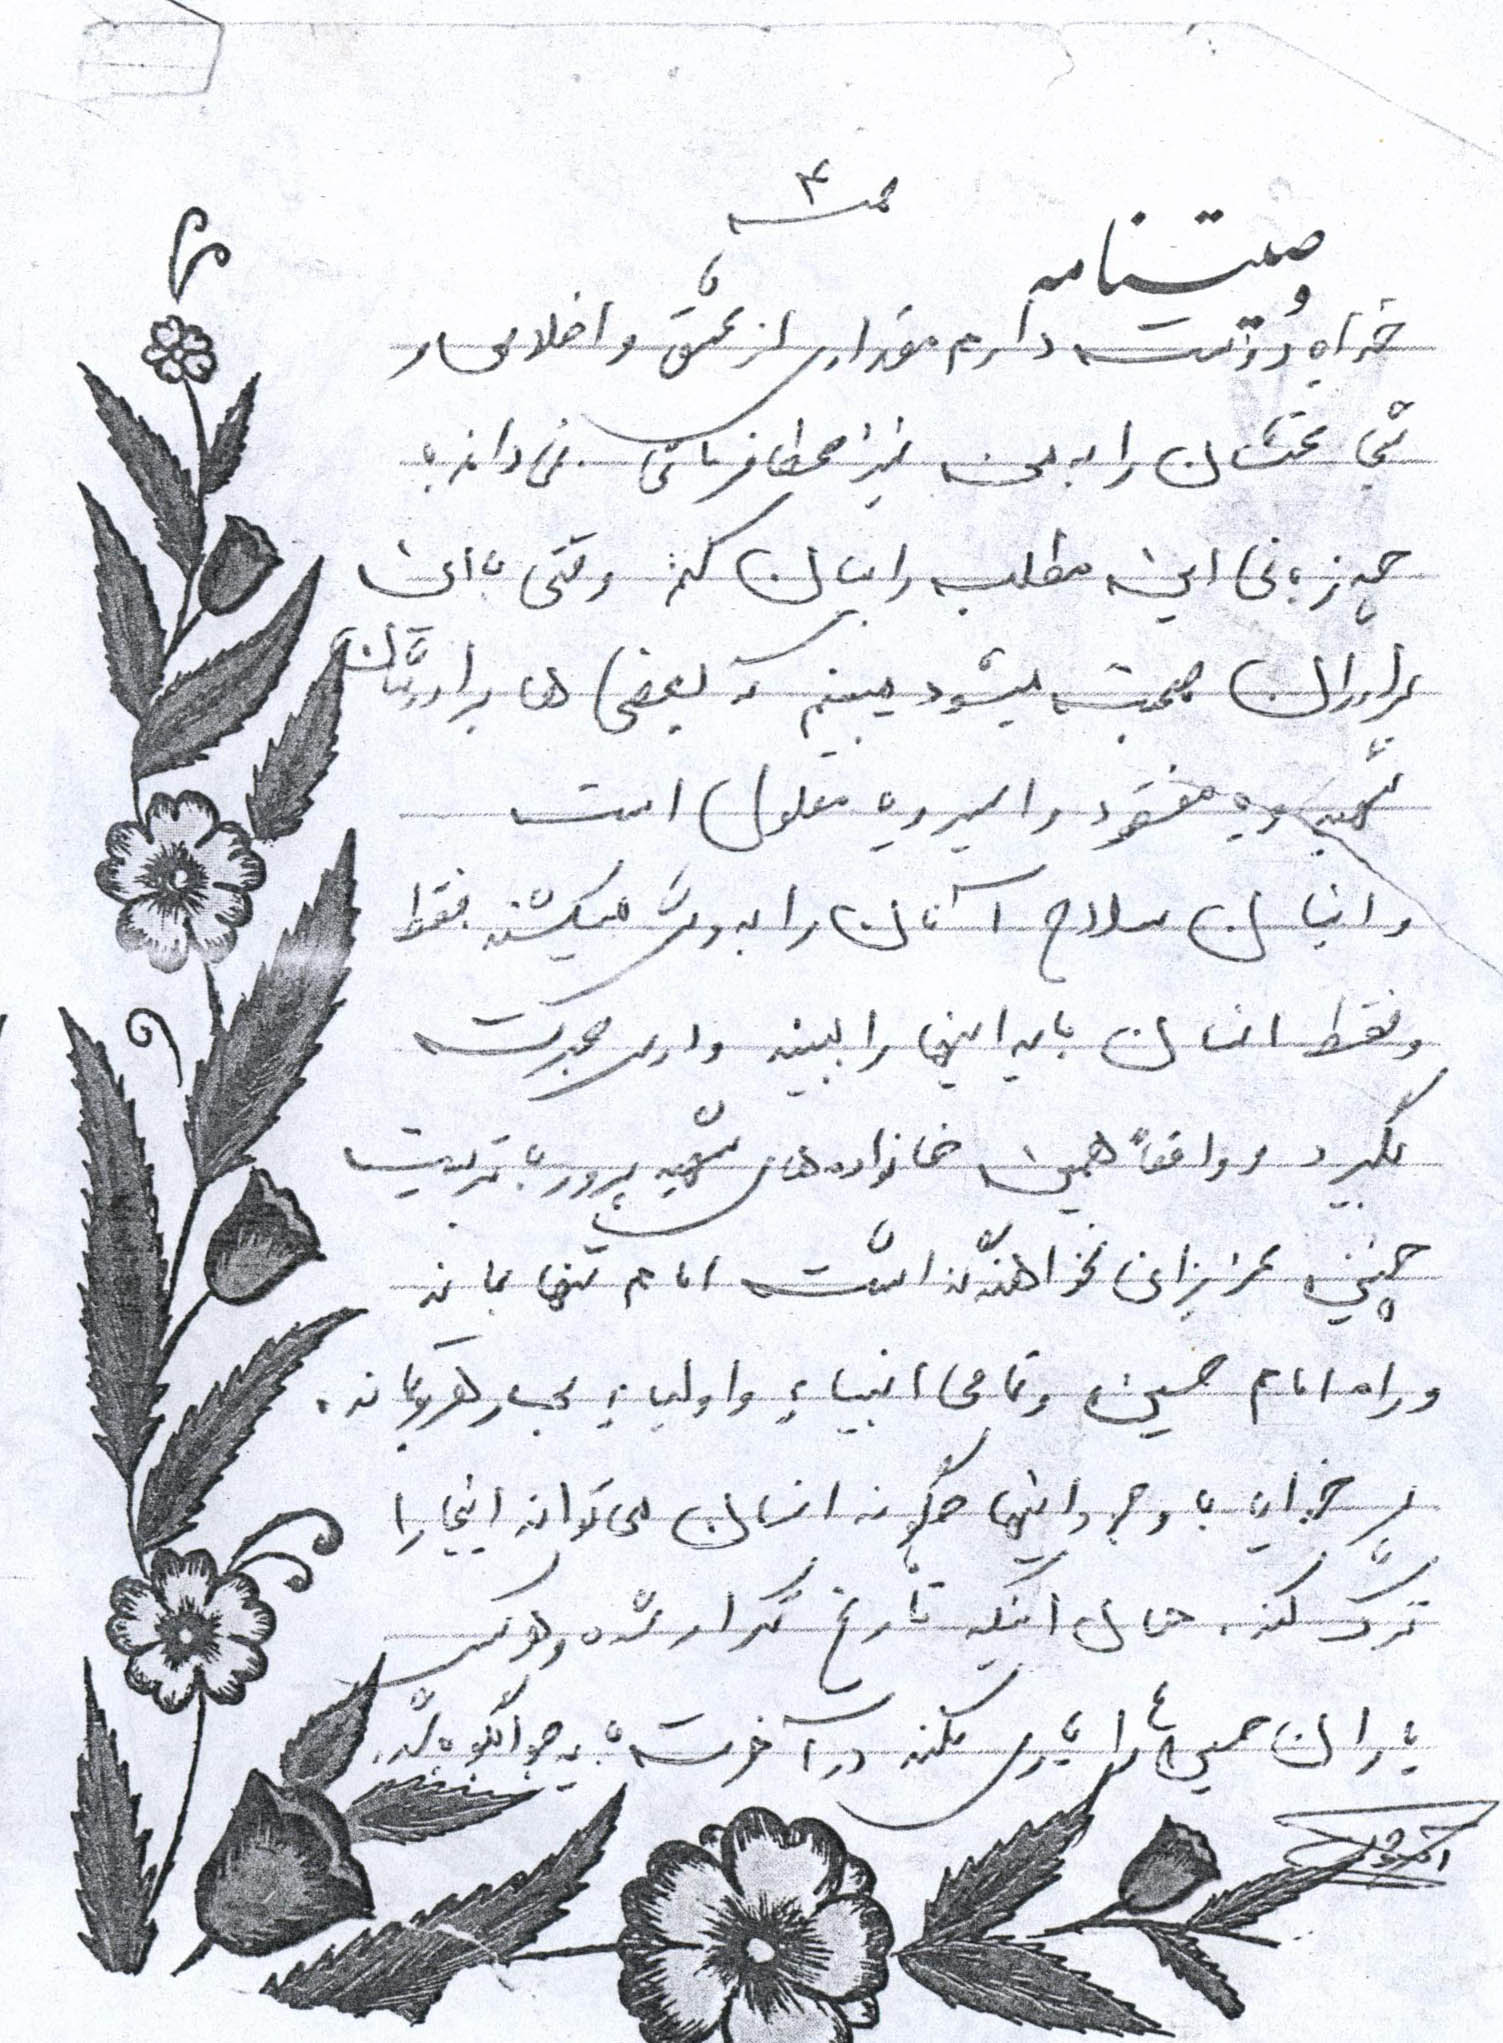 ۴
وصیتنامه
خدایا دوست دارم مقداری از عشق و اخلاص و
شجاعتشان را به من نیز عطا فرمائی نمی‌دانم با
چه زبانی این مطلب را بیان کنم وقتی با این
برادران صحبت میشود میبینم که بعضی ها برادرشان
شهید و یا مفقود و اسیر و یا معلول است
و اینان سلاح آنان را به دوش میکشند فقط
و فقط انسان باید اینها را ببیند و درس عبرت
بگیرد و واقعاً همین خانواده‌های شهید پرور با تربیت
چنین عزیزانی نخواهند گذاشت امام تنها بماند
و راه امام حسین و تمامی انبیاء و اولیاء بی رهرو بماند.
پس خدایا با وجود اینها چگونه انسان می‌تواند اینجا را
ترک کند. حال اینکه تاریخ تکرار شده و هرکس
یاران حسین را یاری نکند در آخرت باید جوابگو باشد.